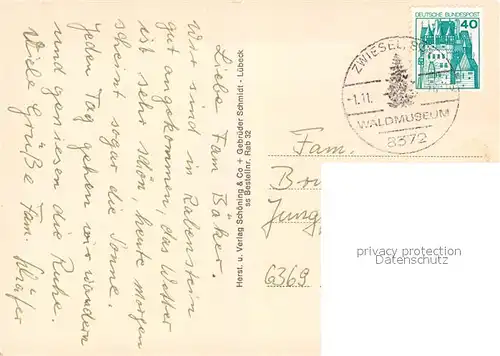 Liebe Fam. Bäker.
Wir sind in Rabenstein
gut angekommen, das Wetter
ist sehr schön, heute morgen
scheint sogar die Sonne.
Jeden Tag gehen wir wandern
und geniesen die Ruhe.
Viele Grüße Fam. Schäfer
Herst. u. Verlag Schöning & Co + Gebrüder Schmidt - Lübeck
as Bestellnr. Rab 32
DEUTSCHE BUNDESPOST
40
ZWIESEL,
-1.11.
WALDMUSEUM
8372
Fam.
Jung
6369
privacy protection
Datenschutz